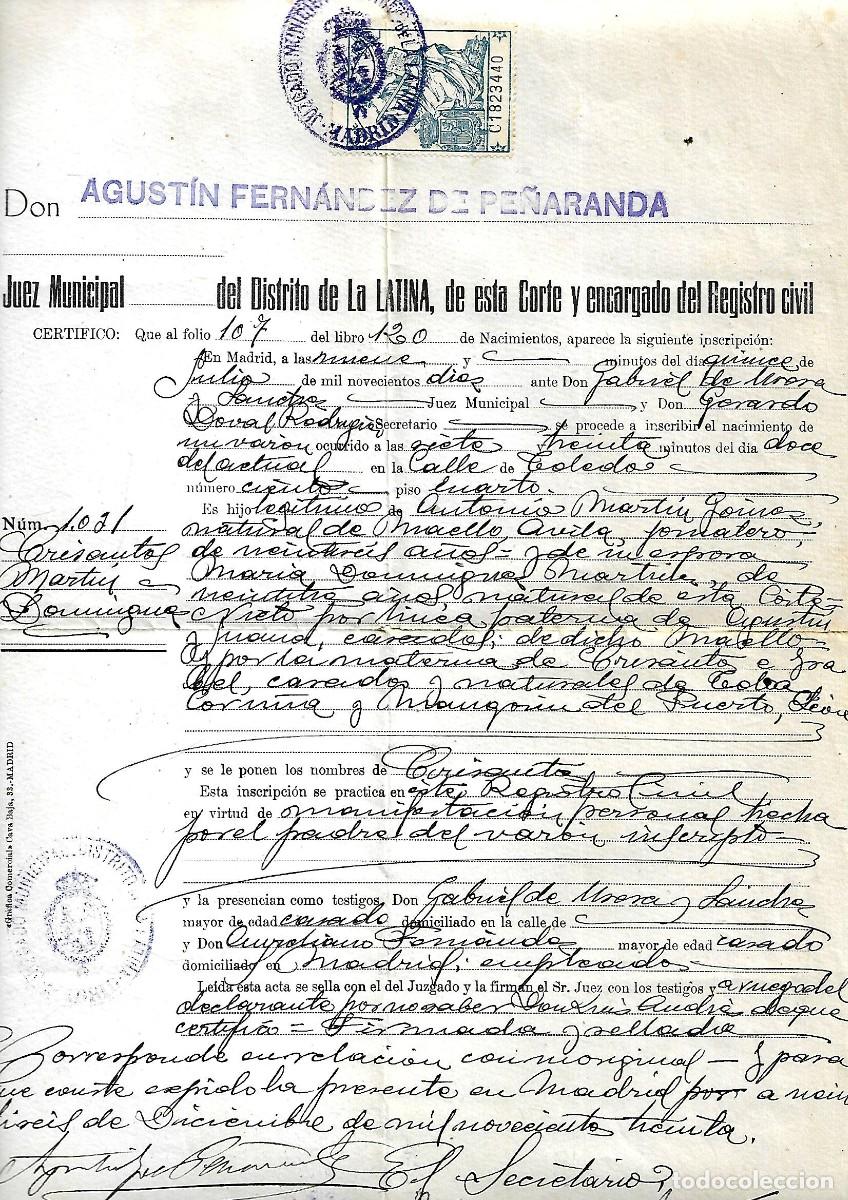 JUZGADO MUNICIPAL DEL DISTRITO DE LA LATINA
MADRID
C1823440
Don AGUSTÍN FERNÁNDEZ DE PEÑARANDA
Juez Municipal del Distrito de La LATINA, de esta Corte y encargado del Registro civil
CERTIFICO: Que al folio 107 del libro 120 de Nacimientos, aparece la siguiente inscripción:
En Madrid, a las nueve y minutos del día quince de
Julio de mil novecientos diez ante Don Gabriel de Usera
y Sanchez Juez Municipal y Don Gerardo
Doval Rodrigez Secretario se procede a inscribir el nacimiento de
un varon ocurrido a las siete y treinta minutos del día doce
del actual en la Calle de Toledo
número ciento piso cuarto
Es hijo legitimo de Antonio Martin Gomez,
Núm. 1.021
natural de Maello, Avila, jornalero,
Crisantos
de veintiseis años - y de su esposa
Martin
Maria Dominguez Martin, de
Dominguez
años, natural de esta Corte -
Nieto por linea paterna de Agustin
y Juana, casados, de dicho Maello -
y por la materna de Crisanto e Isa
bel, casados y naturales de
Coruña y del Puerto, León
y se le ponen los nombres de Crisanto
Esta inscripción se practica en este Registro Civil
en virtud de manifestacion personal hecha
por el padre del varon inscripto -
y la presencian como testigos, Don Gabriel de Usera y Sanchez
mayor de edad casado domiciliado en la calle de
y Don Aureliano Fernández mayor de edad casado
domiciliado en Madrid; empleado
Leída esta acta se sella con el del Juzgado y la firman el Sr. Juez con los testigos y a ruego del
declarante por no saber Don Luis Andrés de que
certifico = Firmada y sellada
Corresponde en relacion con su original - y para
que conste expido la presente en Madrid por a vein
tiseis de Diciembre de mil novecientos treinta.
El Secretario
«Gráfica Comercial» Cava Baja, 33.-MADRID
todocoleccion